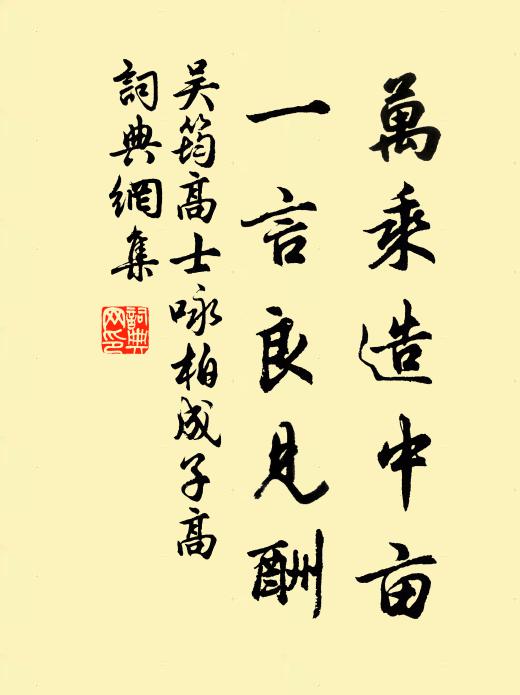 萬乘造中亩
一言良見酬
吴筠高士咏柏成子高
詞典網集
詞典
网印